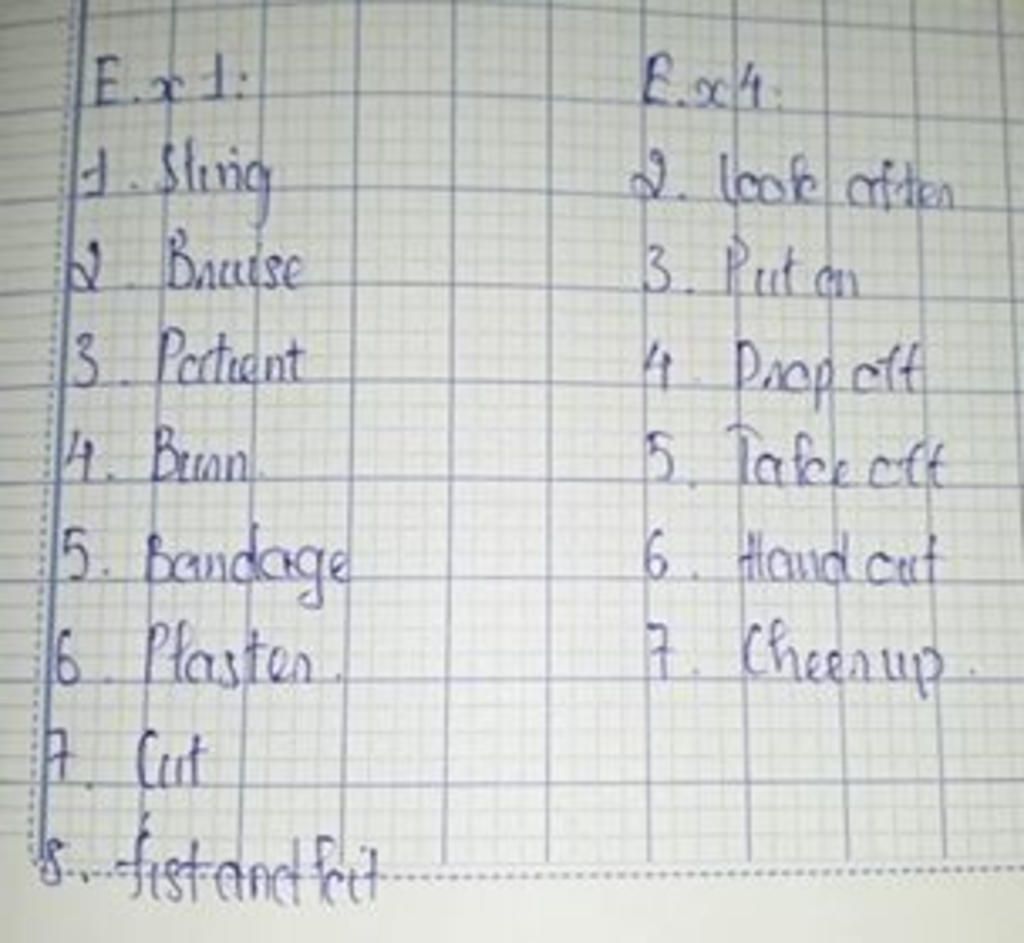 E.x 1:
1. Sling
2. Bruise
3. Patient
4. Burn
5. Bandage
6. Plaster.
7. Cut
8. fist and kit
E.x 4.
2. look after
3. Put on
4. Drop off
5. Take off
6. Hand out
7. Cheer up.